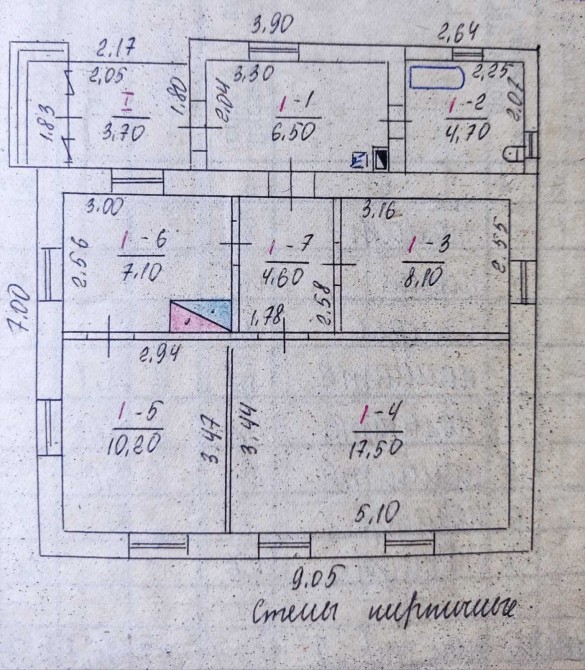 3.90
2.64
2.17
2,05
1.83
I
3,70
1.80
2,04
3,30
1-1
6,50
2,25
1-2
4,70
2.07
3.00
2.56
1-6
7,10
1-7
4.60
1,78
2.58
3,16
1-3
8,10
2.55
7.00
2.94
1-5
10,20
3.47
3,44
1-4
17,50
5,10
9.05
Стены кирпичные